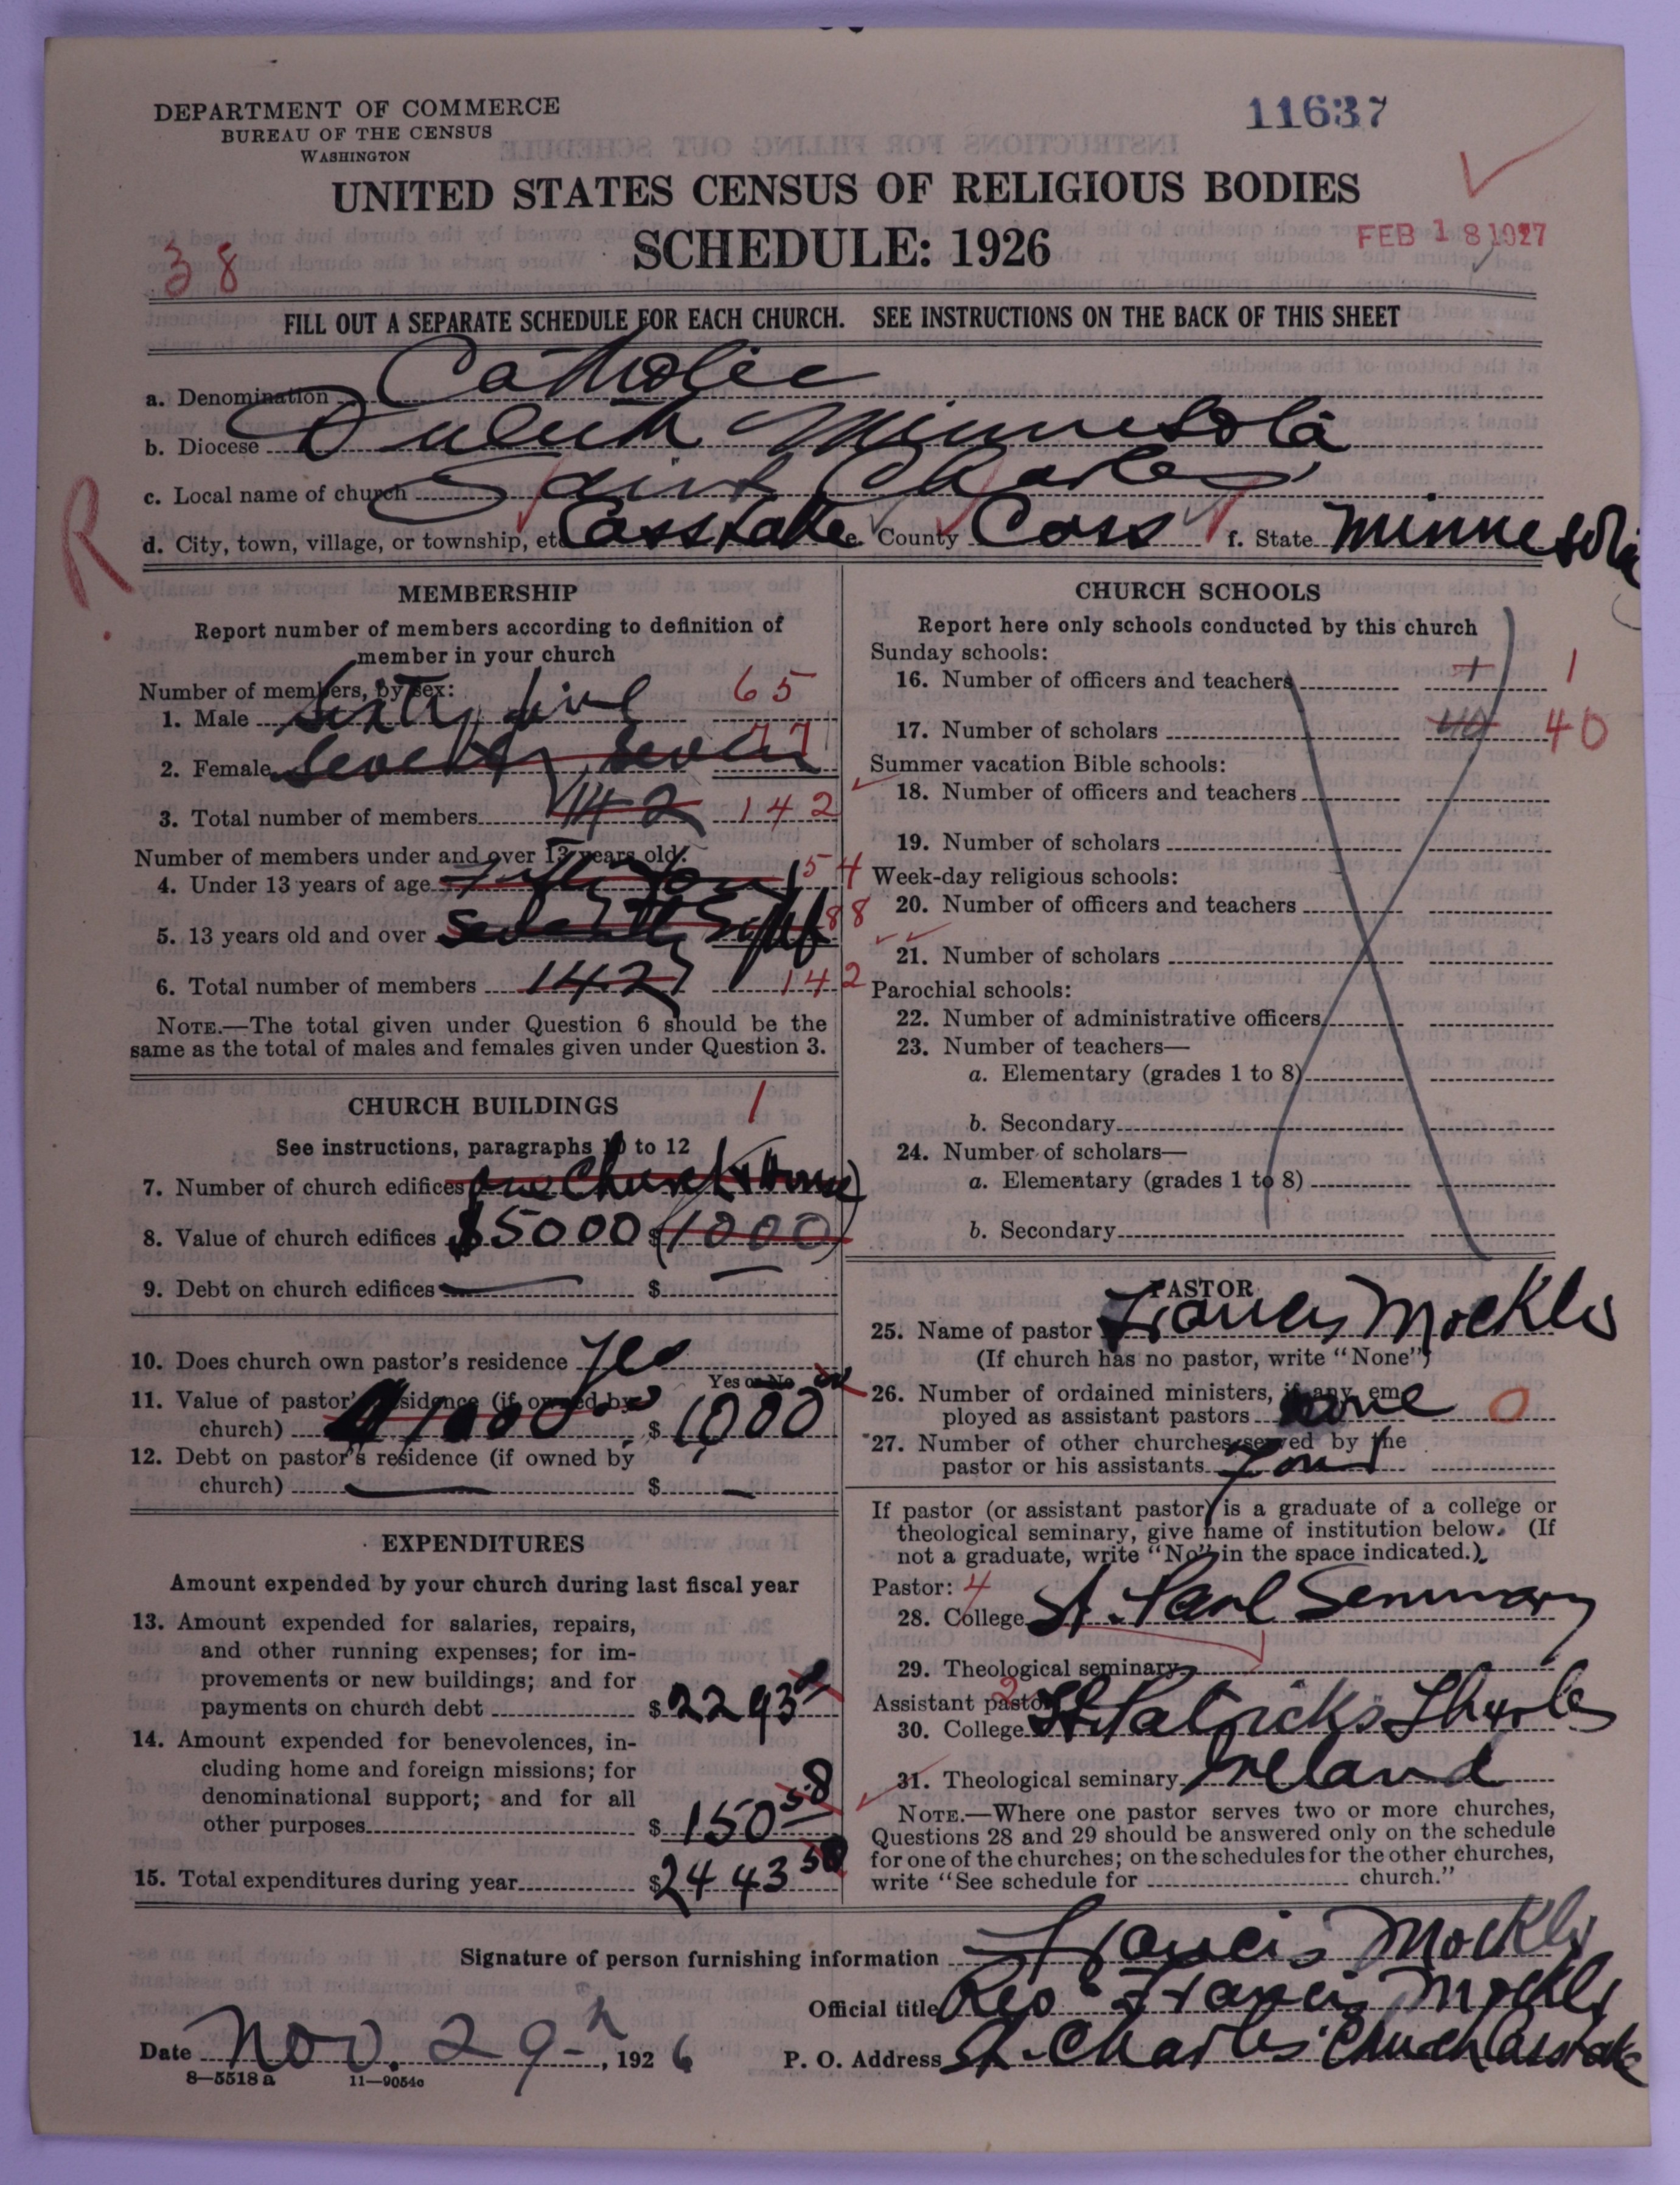 DEPARTMENT OF COMMERCE
BUREAU OF THE CENSUS
WASHINGTON
11637
UNITED STATES CENSUS OF RELIGIOUS BODIES
SCHEDULE: 1926
FEB 18 1927
38
FILL OUT A SEPARATE SCHEDULE FOR EACH CHURCH. SEE INSTRUCTIONS ON THE BACK OF THIS SHEET
a. Denomination Catholic
b. Diocese Duluth Minnesota
c. Local name of church Saint Charles
R
d. City, town, village, or township, etc. Cass Lake e. County Cass f. State Minnesota
MEMBERSHIP
Report number of members according to definition of
member in your church
Number of members, by sex:
1. Male Sixty five 65
2. Female Seventy seven 77
3. Total number of members 142 142
Number of members under and over 13 years old:
4. Under 13 years of age fifty four 54
5. 13 years old and over 88
6. Total number of members 142 142
NOTE.—The total given under Question 6 should be the
same as the total of males and females given under Question 3.
CHURCH BUILDINGS 1
See instructions, paragraphs 10 to 12
7. Number of church edifices one Church & House
8. Value of church edifices $5000 $ (1000)
9. Debt on church edifices — $ —
10. Does church own pastor's residence Yes
Yes or No
11. Value of pastor's residence (if owned by
church) $1000.00 $ 1000
12. Debt on pastor's residence (if owned by
church) — $ —
EXPENDITURES
Amount expended by your church during last fiscal year
13. Amount expended for salaries, repairs,
and other running expenses; for im-
provements or new buildings; and for
payments on church debt $ 2293
14. Amount expended for benevolences, in-
cluding home and foreign missions; for
denominational support; and for all
other purposes $ 150 58
15. Total expenditures during year $ 2443 58
CHURCH SCHOOLS
Report here only schools conducted by this church
Sunday schools:
16. Number of officers and teachers 1 1
17. Number of scholars 40 40
Summer vacation Bible schools:
18. Number of officers and teachers
19. Number of scholars
Week-day religious schools:
20. Number of officers and teachers
21. Number of scholars
Parochial schools:
22. Number of administrative officers
23. Number of teachers—
a. Elementary (grades 1 to 8)
b. Secondary
24. Number of scholars—
a. Elementary (grades 1 to 8)
b. Secondary
PASTOR
25. Name of pastor Francis Mockler
(If church has no pastor, write "None")
26. Number of ordained ministers, if any, em-
ployed as assistant pastors none 0
27. Number of other churches served by the
pastor or his assistants Four
If pastor (or assistant pastor) is a graduate of a college or
theological seminary, give name of institution below. (If
not a graduate, write "No" in the space indicated.)
Pastor: 4
28. College St. Paul Seminary
29. Theological seminary
Assistant pastor: 2
30. College St Patricks Thurles
31. Theological seminary Ireland
NOTE.—Where one pastor serves two or more churches,
Questions 28 and 29 should be answered only on the schedule
for one of the churches; on the schedules for the other churches,
write "See schedule for church."
Signature of person furnishing information Francis Mockler
Official title Rev. Francis Mockler
Date Nov. 29th, 1926 P. O. Address St. Charles Church Cass Lake
8—5518a 11—9054c